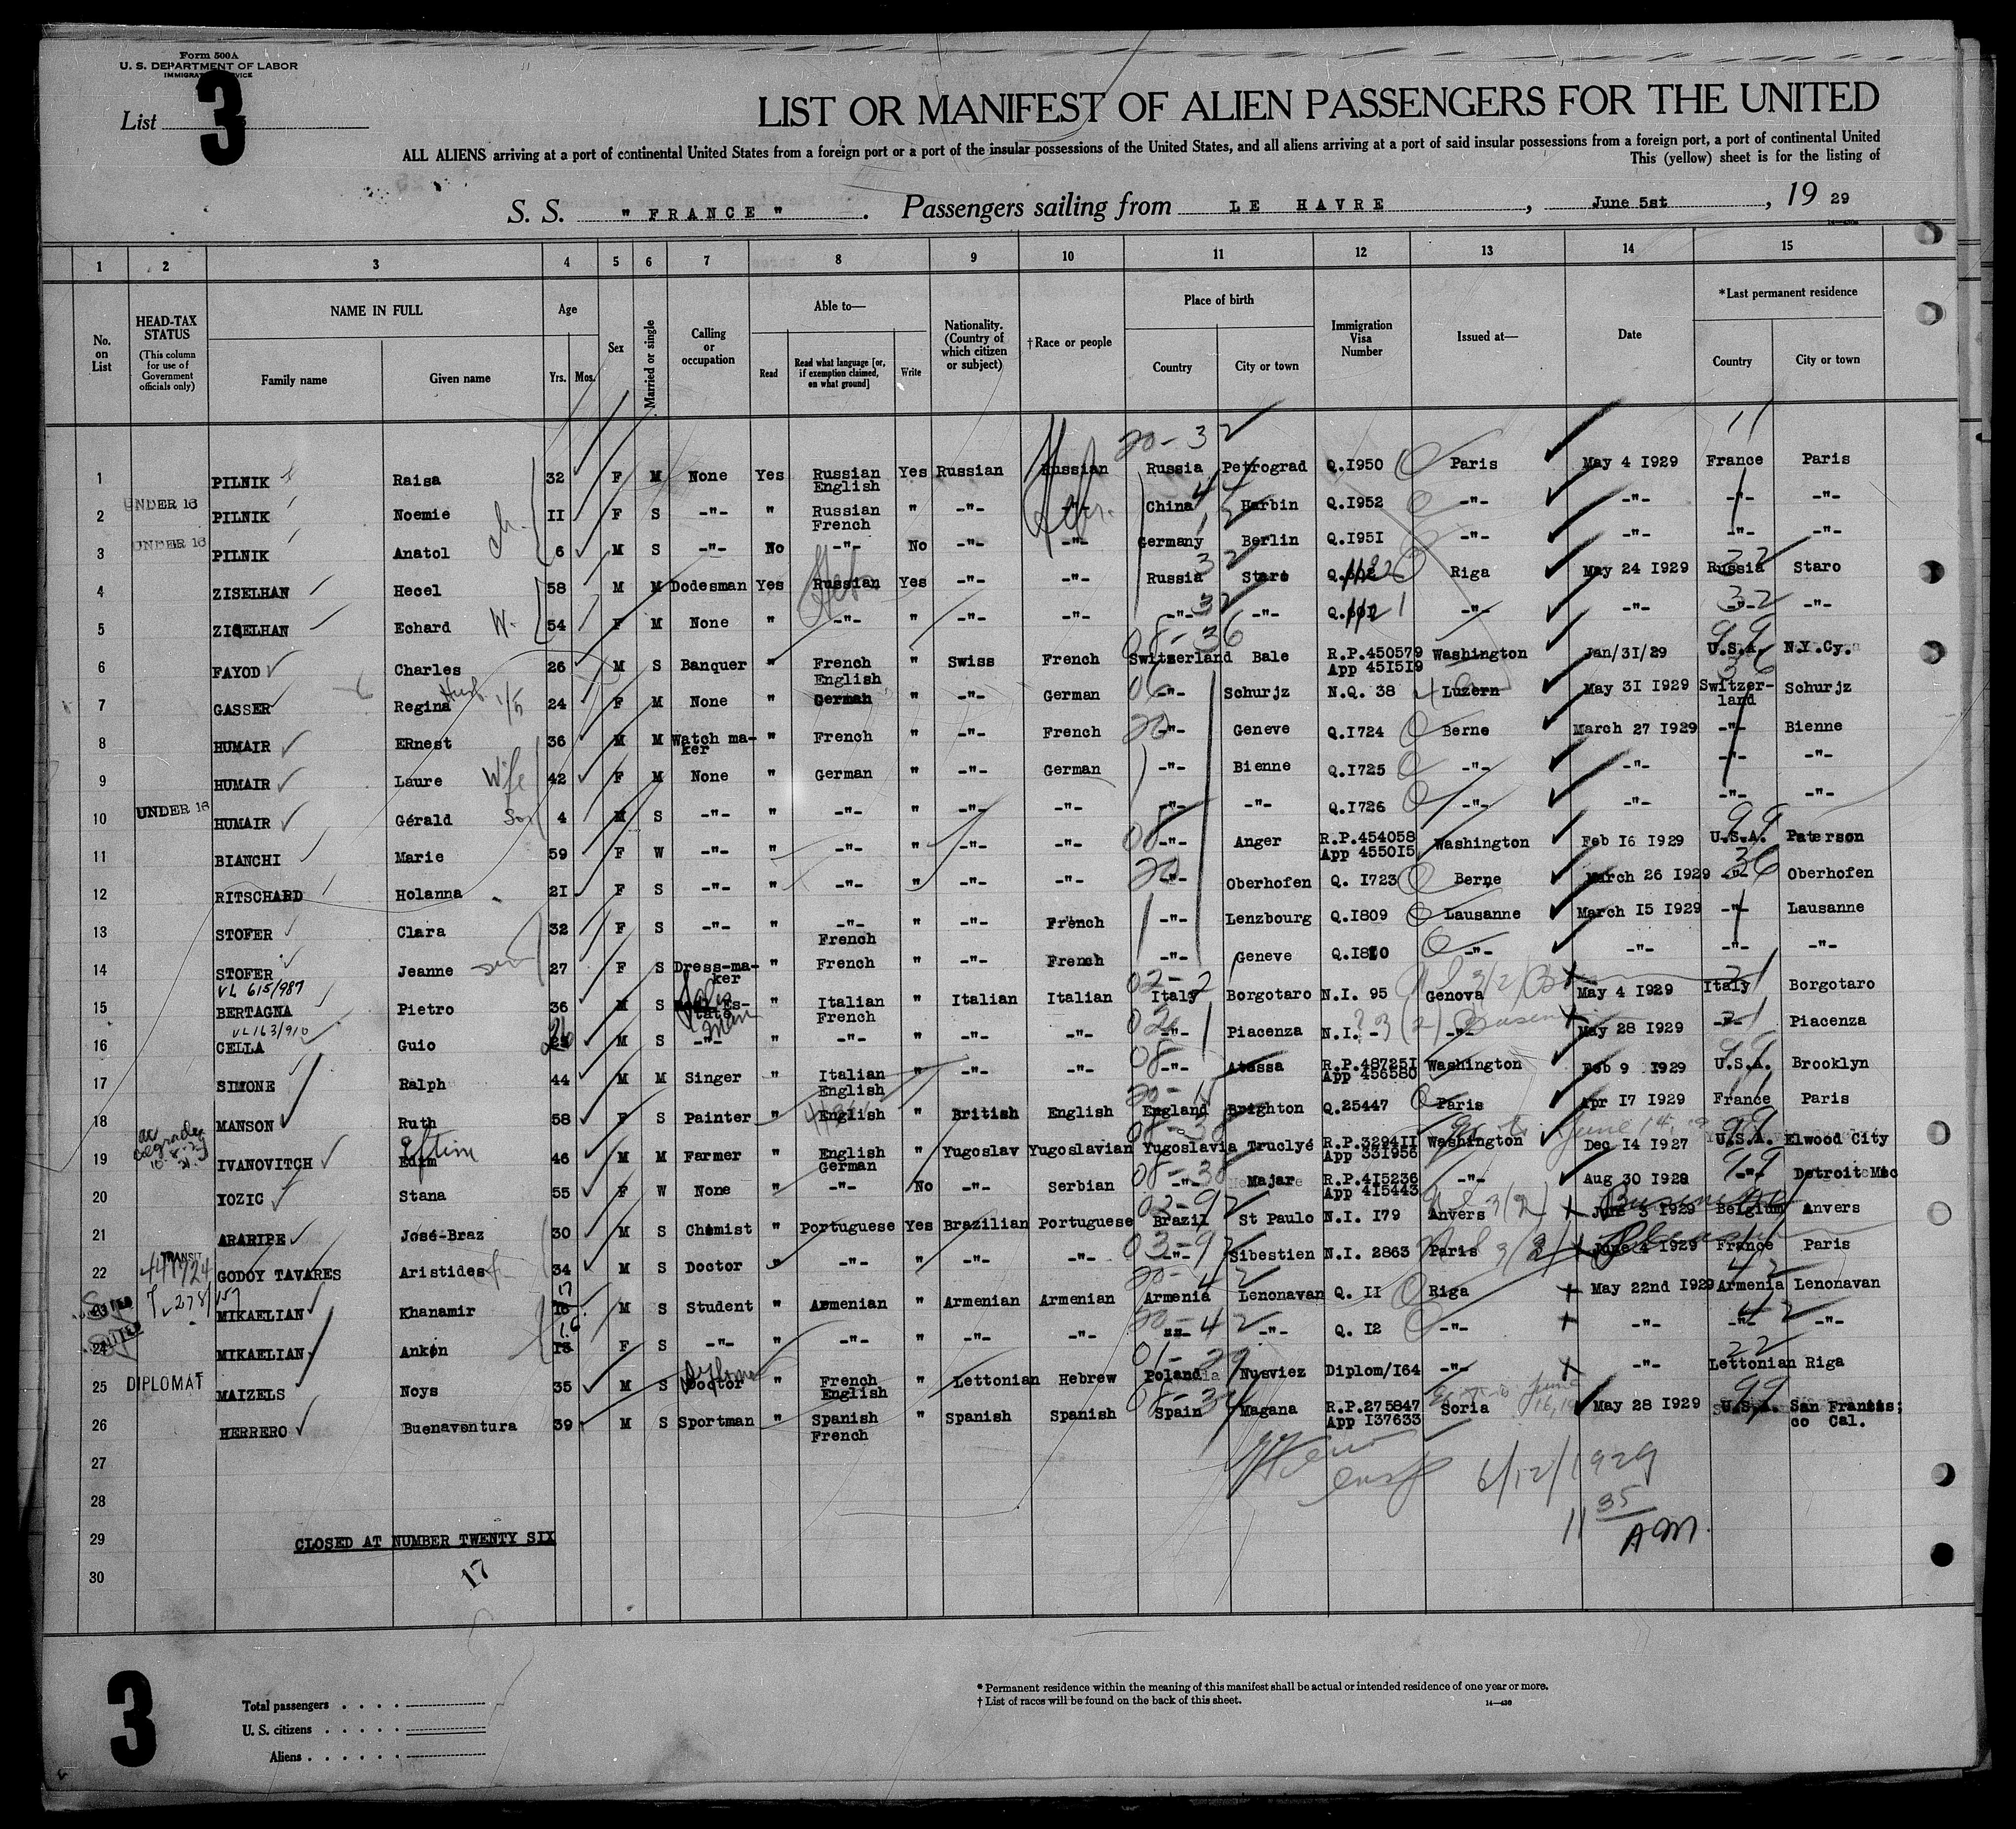 Form 500A
U. S. DEPARTMENT OF LABOR
IMMIGRATION SERVICE
List 3
LIST OR MANIFEST OF ALIEN PASSENGERS FOR THE UNITED
ALL ALIENS arriving at a port of continental United States from a foreign port or a port of the insular possessions of the United States, and all aliens arriving at a port of said insular possessions from a foreign port, a port of continental United
This (yellow) sheet is for the listing of
S. S. " FRANCE " . Passengers sailing from LE HAVRE , June 5st , 19 29
1 2 3 4 5 6 7 8 9 10 11 12 13 14 15
No. on List
HEAD-TAX STATUS
(This column for use of Government officials only)
NAME IN FULL
Family name
Given name
Age
Yrs. Mos.
Sex
Married or single
Calling or occupation
Able to—
Read
Read what language [or, if exemption claimed, on what ground]
Write
Nationality. (Country of which citizen or subject)
†Race or people
Place of birth
Country
City or town
Immigration Visa Number
Issued at—
Date
*Last permanent residence
Country
City or town
20-32
1 PILNIK Raisa 32 F M None Yes Russian English Yes Russian Russian Russia Petrograd Q.I950 Paris May 4 I929 France Paris
2 UNDER 16 PILNIK Noemie II F S -"- " Russian French " -"- -"- China Harbin Q.I952 -"- -"- -"- -"-
3 UNDER 16 PILNIK Anatol 6 M S -"- No -"- No -"- -"- Germany Berlin Q.I95I -"- -"- -"- -"-
4 ZISELHAN Hecel 58 M M Dodesman Yes Russian Yes -"- -"- Russia Staro Riga May 24 I929 Russia Staro
5 ZISELHAN Echard W. 54 F M None " -"- " -"- -"- -"- -"- -"- -"- -"- -"-
6 FAYOD Charles 26 M S Banquer " French English " Swiss French Switzerland Bale R.P.450579 App 45I5I9 Washington Jan/3I/29 U.S.A. N.Y.Cy.
7 GASSER Regina 24 F M None " German " -"- German -"- Schurjz N.Q. 38 Luzern May 3I I929 Switzer-land Schurjz
8 HUMAIR ERnest 36 M M Watch ma-ker " French " -"- French -"- Geneve Q.I724 Berne March 27 I929 -"- Bienne
9 HUMAIR Laure Wife 42 F M None " German " -"- German -"- Bienne Q.I725 -"- -"- -"- -"-
10 UNDER 16 HUMAIR Gérald Son 4 M S -"- " -"- " -"- -"- -"- -"- Q.I726 -"- -"- -"- -"-
11 BIANCHI Marie 59 F W -"- " -"- " -"- -"- -"- Anger R.P.454058 App 4550I5 Washington Feb I6 I929 U.S.A. Paterson
12 RITSCHARD Holanna 2I F S -"- " -"- " -"- -"- -"- Oberhofen Q. I723 Berne March 26 I929 -"- Oberhofen
13 STOFER Clara 32 F S -"- " -"- French " -"- French -"- Lenzbourg Q.I809 Lausanne March I5 I929 -"- Lausanne
14 STOFER Jeanne 27 F S Dress-ma-ker " French " -"- French Geneve Q.I8I0 -"- -"- -"- -"-
VL 615/987
15 BERTAGNA Pietro 36 M S " Italian French " Italian Italian Italy Borgotaro N.I. 95 Genova May 4 I929 Italy Borgotaro
VL163/910
16 CELLA Guio 26 M S -"- " -"- " -"- -"- -"- Piacenza N.I. -"- May 28 I929 -"- Piacenza
17 SIMONE Ralph 44 M M Singer " Italian English " -"- -"- -"- Atessa R.P.48725I App 456580 Washington Feb 9 I929 U.S.A. Brooklyn
18 MANSON Ruth 58 F S Painter " English " British English England Brighton Q.25447 Paris Apr I7 I929 France Paris
19 IVANOVITCH Edim 46 M M Farmer " English German " Yugoslav Yugoslavian Yugoslavia Truclyé R.P.3294II App 33I956 Washington Dec I4 I927 U.S.A. Elwood City
20 YOZIC Stana 55 F W None " -"- No -"- Serbian -"- Majar R.P.4I5236 App 4I5443 -"- Aug 30 I928 -"- Detroit Mic
21 ARARIPE José-Braz 30 M S Chemist " Portuguese Yes Brazilian Portuguese Brazil St Paulo N.I. I79 Anvers June 3 I929 Belgium Anvers
22 TRANSIT GODOY TAVARES Aristides 34 M S Doctor " -"- " -"- -"- -"- Sibestien N.I. 2863 Paris June 4 I929 France Paris
MIKAELIAN Khanamir 17 M S Student " Armenian " Armenian Armenian Armenia Lenonavan Q. II Riga May 22nd I929 Armenia Lenonavan
24 MIKAELIAN Ankin 16 F S -"- " -"- " -"- -"- -"- -"- Q. I2 -"- -"- -"- -"-
25 DIPLOMAT MAIZELS Noys 35 M S Doctor " French English " Lettonian Hebrew Poland Nusviez Diplom/I64 -"- -"- Lettonian Riga
26 HERRERO Buenaventura 39 M S Sportman " Spanish French " Spanish Spanish Spain Magana R.P.275847 App I37633 Soria May 28 I929 U.S.A. San Francis;co Cal.
27
28
6/12/1929
11 35 AM.
29 CLOSED AT NUMBER TWENTY SIX
30
17
3
Total passengers . . . .
U. S. citizens . . . . .
Aliens . . . . . .
* Permanent residence within the meaning of this manifest shall be actual or intended residence of one year or more.
† List of races will be found on the back of this sheet.
14—430